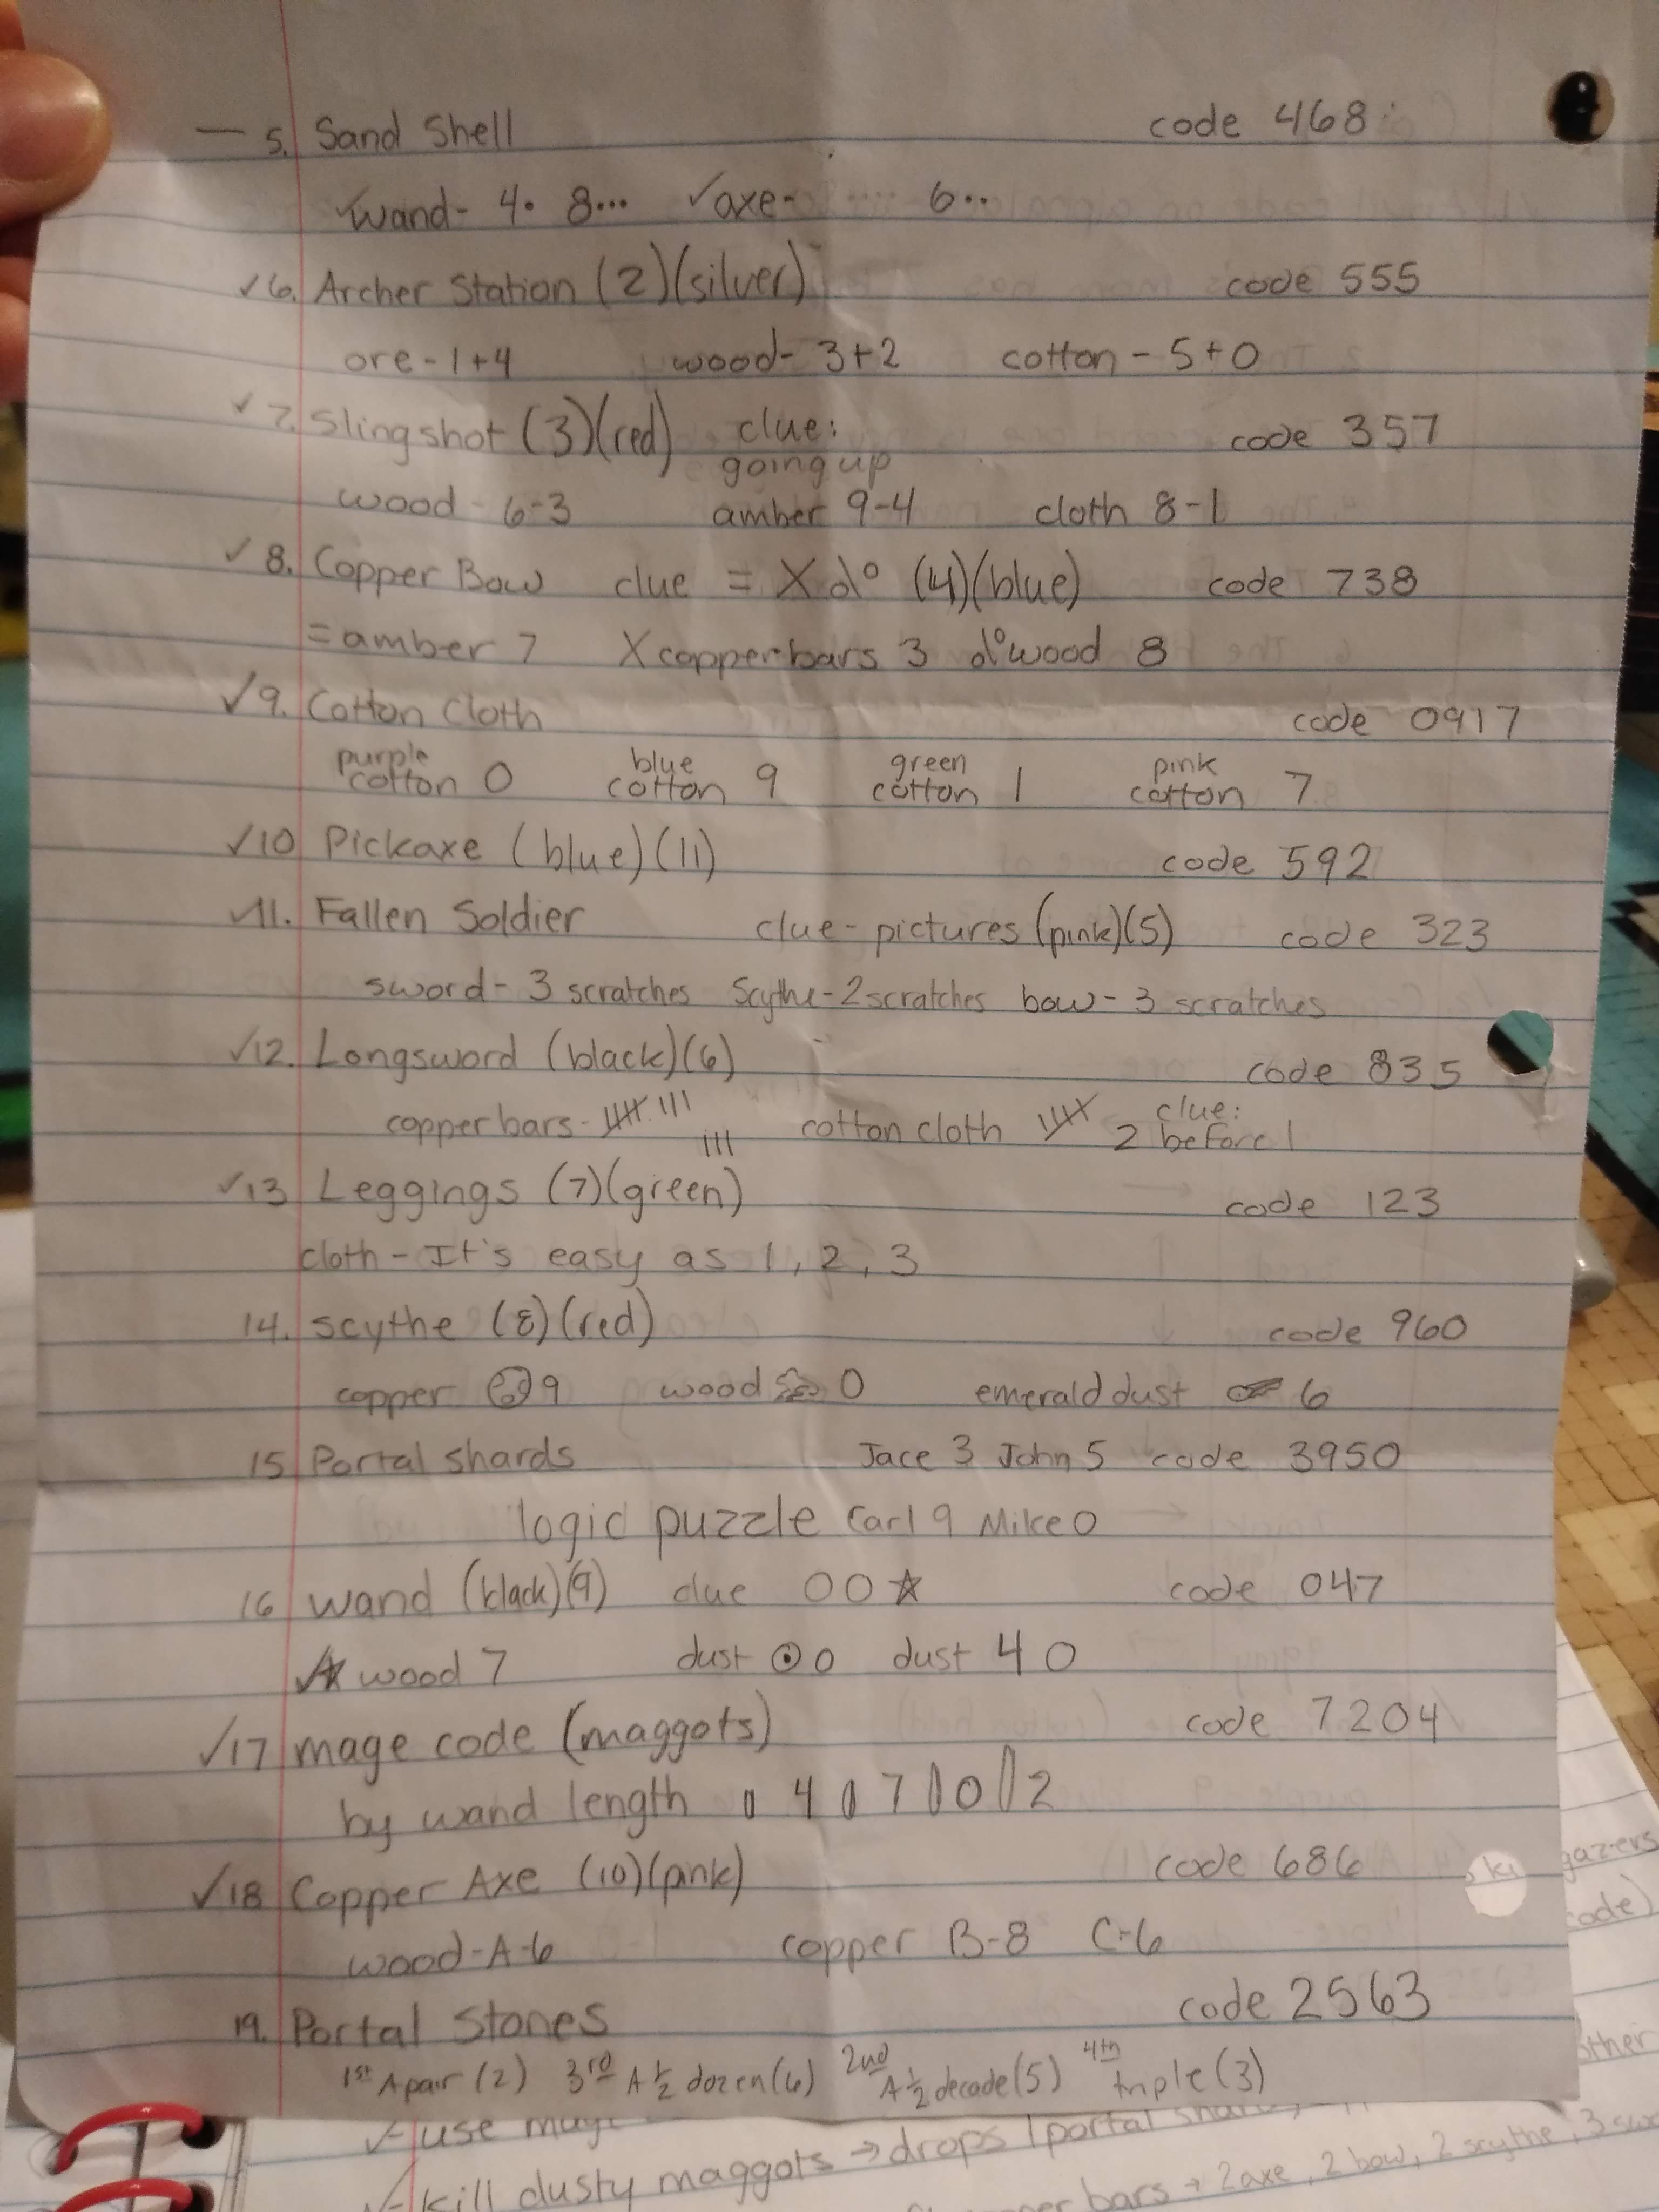 — 5. Sand Shell code 468
✓wand- 4• 8••• ✓axe- 6••
✓6. Archer Station (2)(silver) code 555
ore-1+4 wood- 3+2 cotton - 5+0
✓7. Slingshot (3)(red) clue: code 357
going up
wood - 6-3 amber 9-4 cloth 8-1
✓8. Copper Bow clue = X d° (4)(blue) code 738
= amber 7 X copper bars 3 d° wood 8
✓9. Cotton Cloth code 0917
purple cotton 0 blue cotton 9 green cotton 1 pink cotton 7
✓10 Pickaxe (blue)(11) code 592
✓11. Fallen Soldier clue - pictures (pink)(5) code 323
sword- 3 scratches Scythe-2 scratches bow- 3 scratches
✓12. Longsword (black)(6) code 835
copper bars - 卌 III III cotton cloth 卌 clue: 2 before 1
✓13 Leggings (7)(green) code 123
cloth - It's easy as 1, 2, 3
14. scythe (8)(red) code 960
copper 9 wood 0 emerald dust 6
15 Portal shards Jace 3 John 5 code 3950
logic puzzle Carl 9 Mike 0
16 wand (black)(9) clue OO☆ code 047
☆ wood 7 dust ⊙ 0 dust 4 O
✓17 mage code (maggots) code 7204
by wand length 4 7 0 2
✓18 Copper Axe (10)(pink) code 686
wood-A-6 copper B-8 C-6
19. Portal Stones code 2563
1st A pair (2) 3rd A ½ dozen (6) 2nd A ½ decade (5) 4th triple (3)
gazers
code)
other
✓- use
✓- kill dusty maggots → drops 1 portal shard
bars → 2 axe, 2 bow, 2 scythe, 3